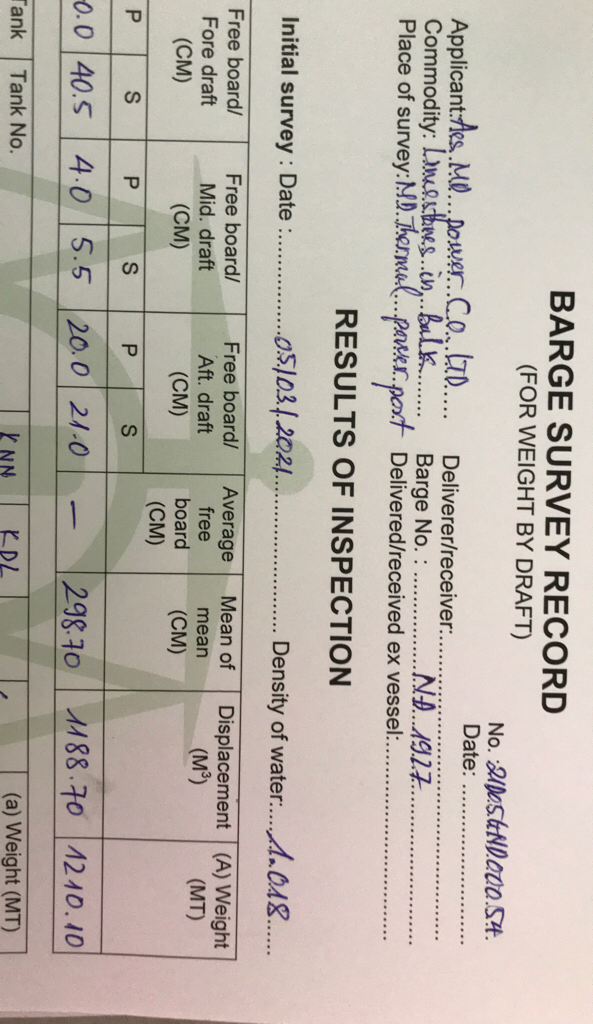 BARGE SURVEY RECORD
(FOR WEIGHT BY DRAFT)
Date: ....................
Applicant: Aes. MD....power..Co...LTD.....
Deliverer/receiver:..............................
Commodity: Limestones..in..bulk........
Barge No. : ............ND..1927
Place of survey: MD.Thermal....power.port
Delivered/received ex vessel:..............................
RESULTS OF INSPECTION
Initial survey : Date :..............05/03/2021.................... Density of water:....1.018......
Free board/ Fore draft (CM) Free board/ Mid. draft (CM) Free board/ Aft. draft (CM) Average free board (CM) Mean of mean (CM) Displacement (M³) (A) Weight (MT)
P S P S P S
0.0 40.5 4.0 5.5 20.0 21.0 – 298.70 1188.70 1210.10
Tank Tank No. KNN KDL (a) Weight (MT)